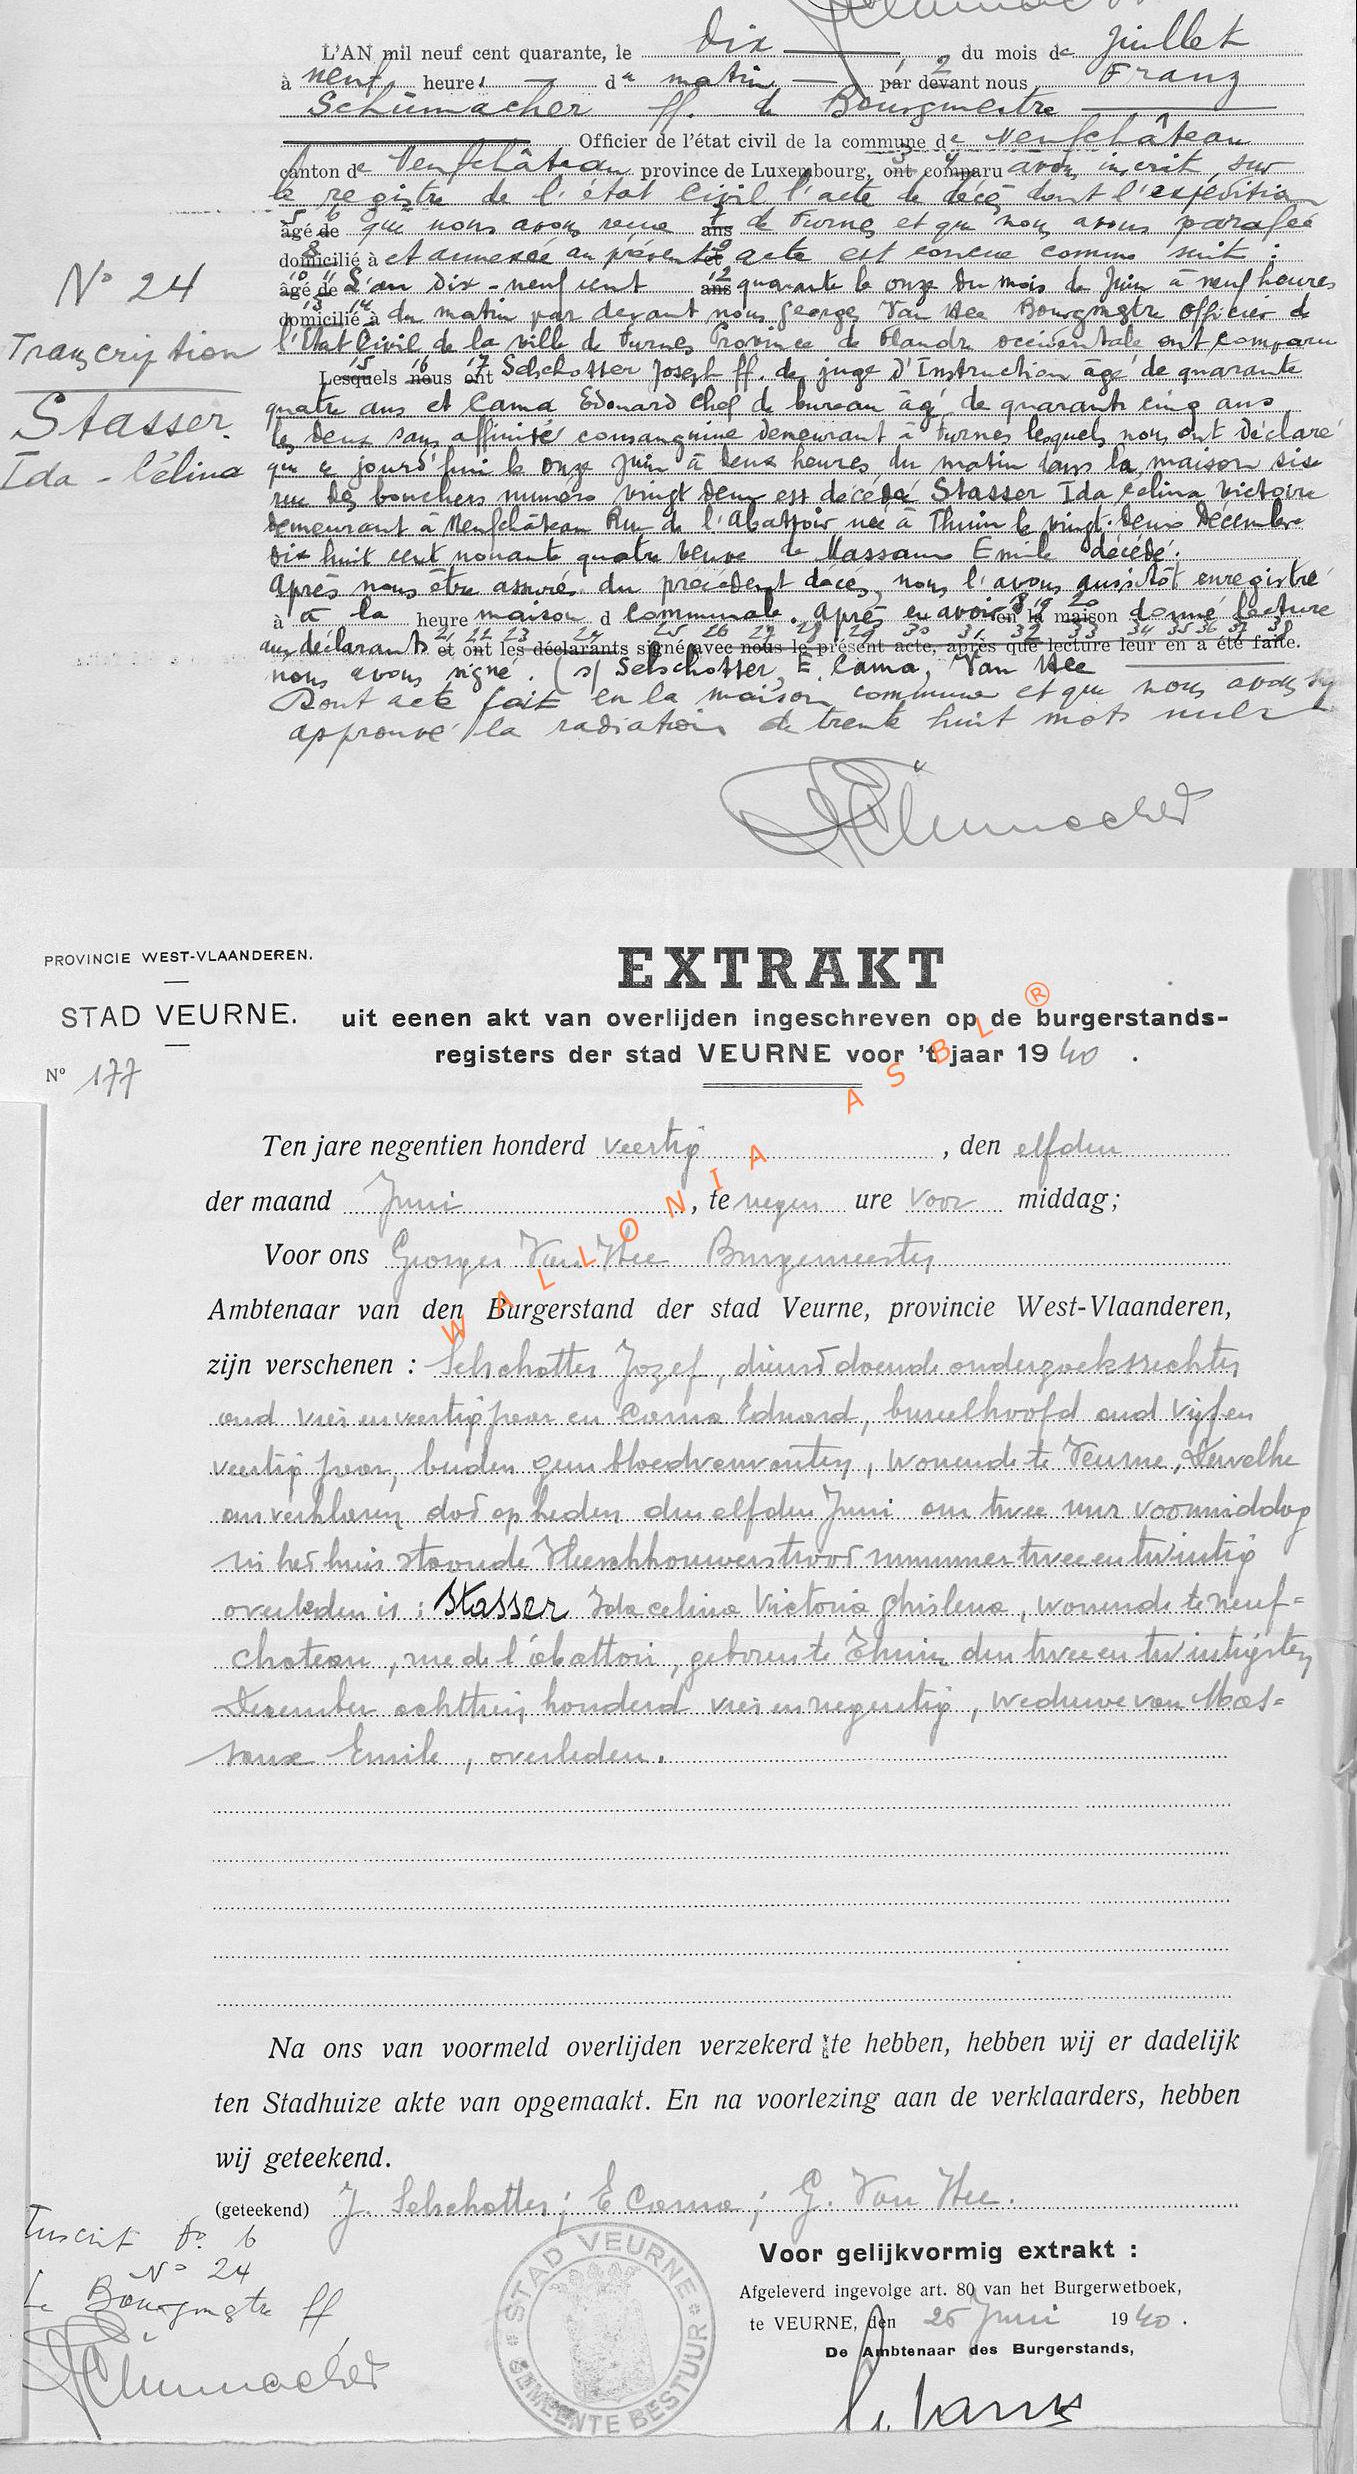 L'AN mil neuf cent quarante, le dix du mois de juillet
à neuf heures du matin par devant nous Franz
Schumacher ff. de Bourgmestre
Officier de l'état civil de la commune de Neufchâteau
canton de Neufchâteau province de Luxembourg, ont comparu avons inscrit sur
le registre de l'état civil l'acte de décès dont l'expédition
âgé de que nous avons reçue ans de Furnes et que nous avons parafée
domicilié à et annexée au présent et acte est conçue comme suit :
N° 24
âgé de L'an dix-neuf cent ans quarante le onze du mois de Juin à neuf heures
domicilié à du matin par devant nous Georges Van Hee Bourgmstre officier de
Transcription
l'Etat Civil de la ville de Furnes Province de Flandre occidentale ont comparu
Lesquels nous ont Selschotter Joseph ff. de juge d'Instruction âgé de quarante
Stasser
quatre ans et Cama Edouard chef de bureau âgé de quarante cinq ans
les deux sans affinité consanguine demeurant à Furnes lesquels nous ont déclaré
Ida-Célina
que ce jourd'hui le onze Juin à deux heures du matin dans la maison sise
rue des bouchers numéro vingt deux est décédée Stasser Ida Celina Victoire
demeurant à Neufchâteau Rue de l'Abattoir née à Thuin le vingt-deux Décembre
dix huit cent nonante quatre veuve de Massaux Emile décédé.
Après nous être assurés du précédent décès, nous l'avons aussitôt enregistré
à à la heure maison d communale. Après en avoir en la maison donné lecture
aux déclarants et ont les déclarants signé avec nous le présent acte, après que lecture leur en a été faite.
nous avons signé. (s) Selschotter, E. Cama, Van Hee
Dont acte fait en la maison commune et que nous avons
approuvé la radiation de trente huit mots nuls
Schumacher
PROVINCIE WEST-VLAANDEREN.
STAD VEURNE.
N° 177
EXTRAKT
uit eenen akt van overlijden ingeschreven op de burgerstands-
registers der stad VEURNE voor 't jaar 1940.
WALLONIA ASBL ®
Ten jare negentien honderd veertig, den elfden
der maand Juni, te negen ure voor middag;
Voor ons Georges Van Hee Burgemeester
Ambtenaar van den Burgerstand der stad Veurne, provincie West-Vlaanderen,
zijn verschenen : Selschotter Jozef, dienstdoende onderzoeksrechter,
oud vier en veertig jaar en Cama Eduard, bureelhoofd oud vijf en
veertig jaar, beiden geen bloedverwanten, wonende te Veurne, Dewelke
ons verklaren dat op heden den elfden Juni om twee uur voormiddag
in het huis staande Vleeschhouwerstraat nummer twee en twintig
overleden is : Stasser Ida Celina Victoria Ghislena, wonende te Neuf=
chateau, rue de l'abattoir, geboren te Thuin den twee en twintigsten
December achttien honderd vier en negentig, weduwe van Mas=
saux Emile, overleden.
Na ons van voormeld overlijden verzekerd te hebben, hebben wij er dadelijk
ten Stadhuize akte van opgemaakt. En na voorlezing aan de verklaarders, hebben
wij geteekend.
(geteekend) J. Selschotter; E Cama; G. Van Hee.
Inscrit fo. 6
N° 24
Le Bourgmstre ff
Schumacher
STAD VEURNE
GEMEENTE BESTUUR
Voor gelijkvormig extrakt :
Afgeleverd ingevolge art. 80 van het Burgerwetboek,
te VEURNE, den 26 Juni 1940.
De Ambtenaar des Burgerstands,